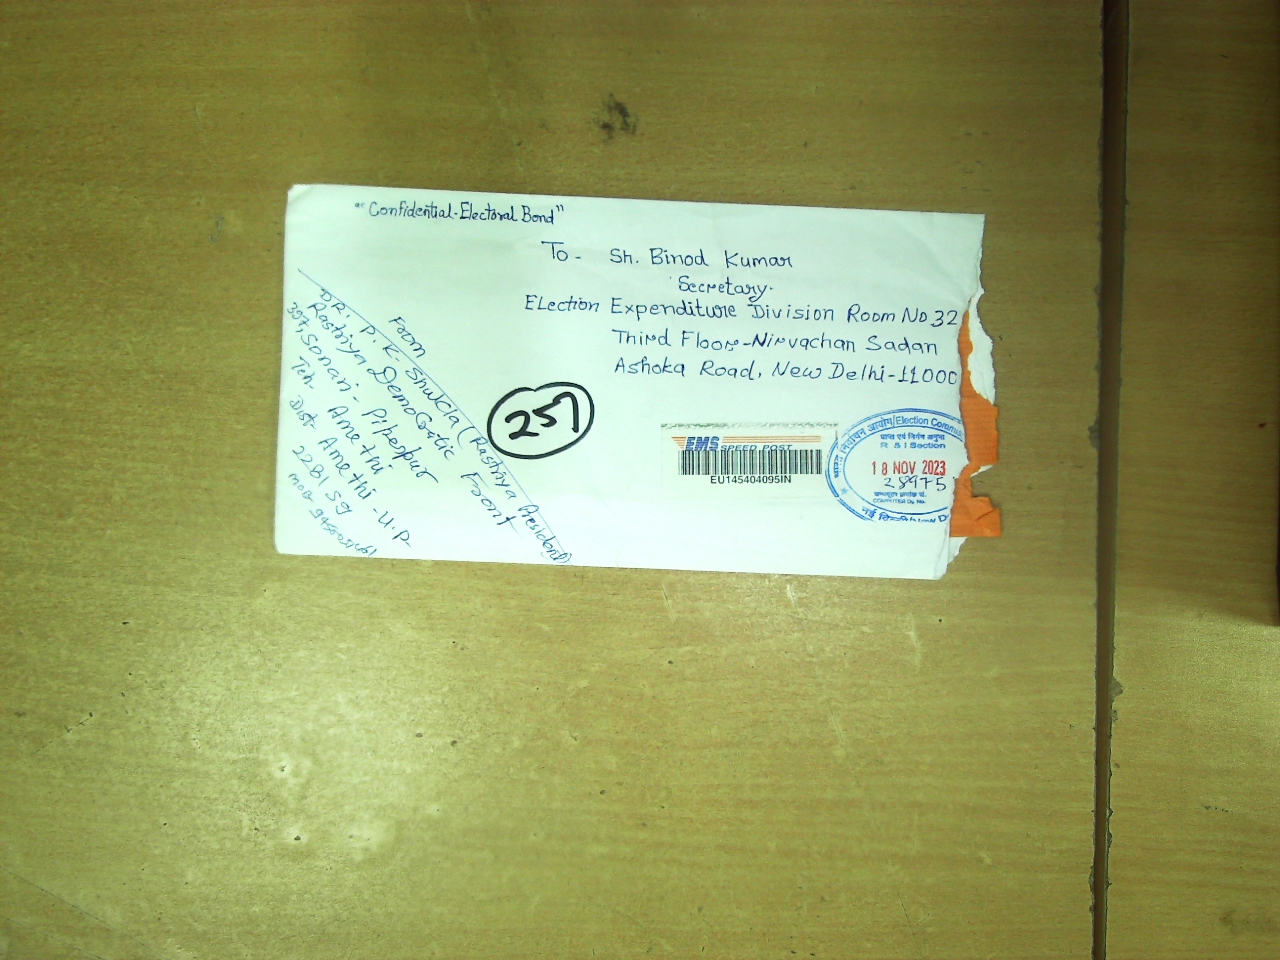 "Confidential-Electoral Bond"
To - Sh. Binod Kumar
Secretary.
Election Expenditure Division Room No 32
Third Floor-Nirvachan Sadan
Ashoka Road, New Delhi-11000
From
DR. P. K. Shukla (Rastriya President)
Rastriya DemoCratic Front
397, Sonari - Piperpur
Teh. Amethi
Dist Amethi - U.P.
228159
257
EMS SPEED POST
EU145404095IN
भारत निर्वाचन आयोग/Election Commi
प्राप्त एवं निर्गम अनुभाग
R & I Section
18 NOV 2023
28975
COMPUTER Dy. No.
नई दिल्ली/New D